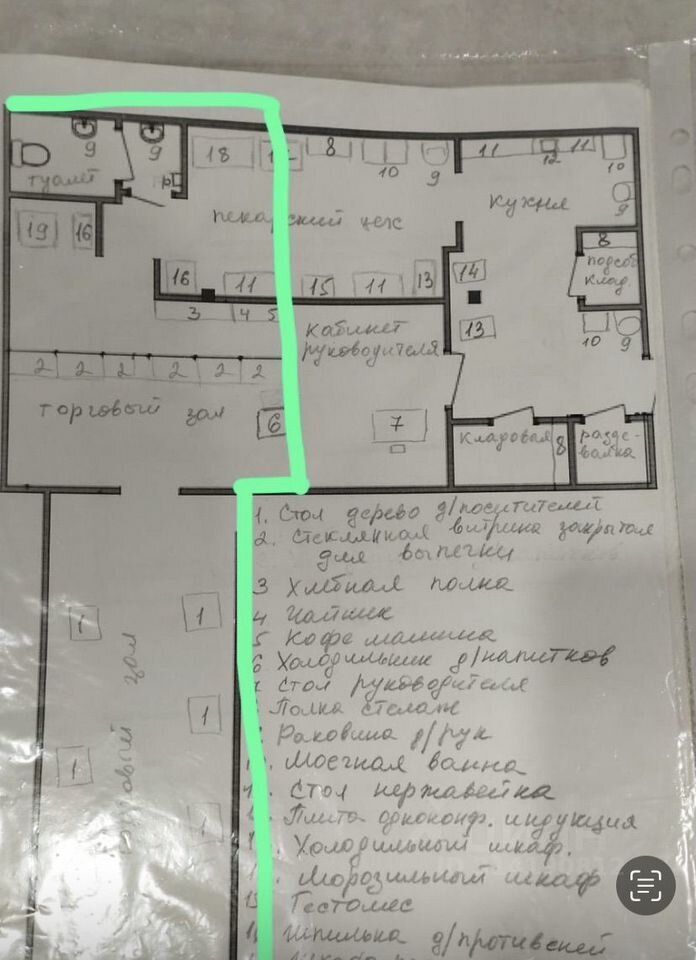 9
9
18
8
10
9
11
12
11
10
туалет
пекарский цех
кухня
9
19
16
8
подсоб
клад.
16
11
15
11
13
14
3
4
5
кабинет
руководителя
13
10
9
2
2
2
2
2
2
торговый зал
6
7
кладовая
8
разде-
валка
1. Стол дерево д/поситителей
2. Стеклянная витрина закрытая
для выпечки
3 Хлебная полка
4 Чайник
5 Кофе машина
6 Холодильник д/напитков
7 Стол руководителя
Полка стелаж
Раковина д/рук
Моечная ванна
Стол нержавейка
Плита одноконф. индукция
Холодильный шкаф.
Морозильный шкаф
Тестомес
Шпилька д/противеней
1
1
зал
1
1
1